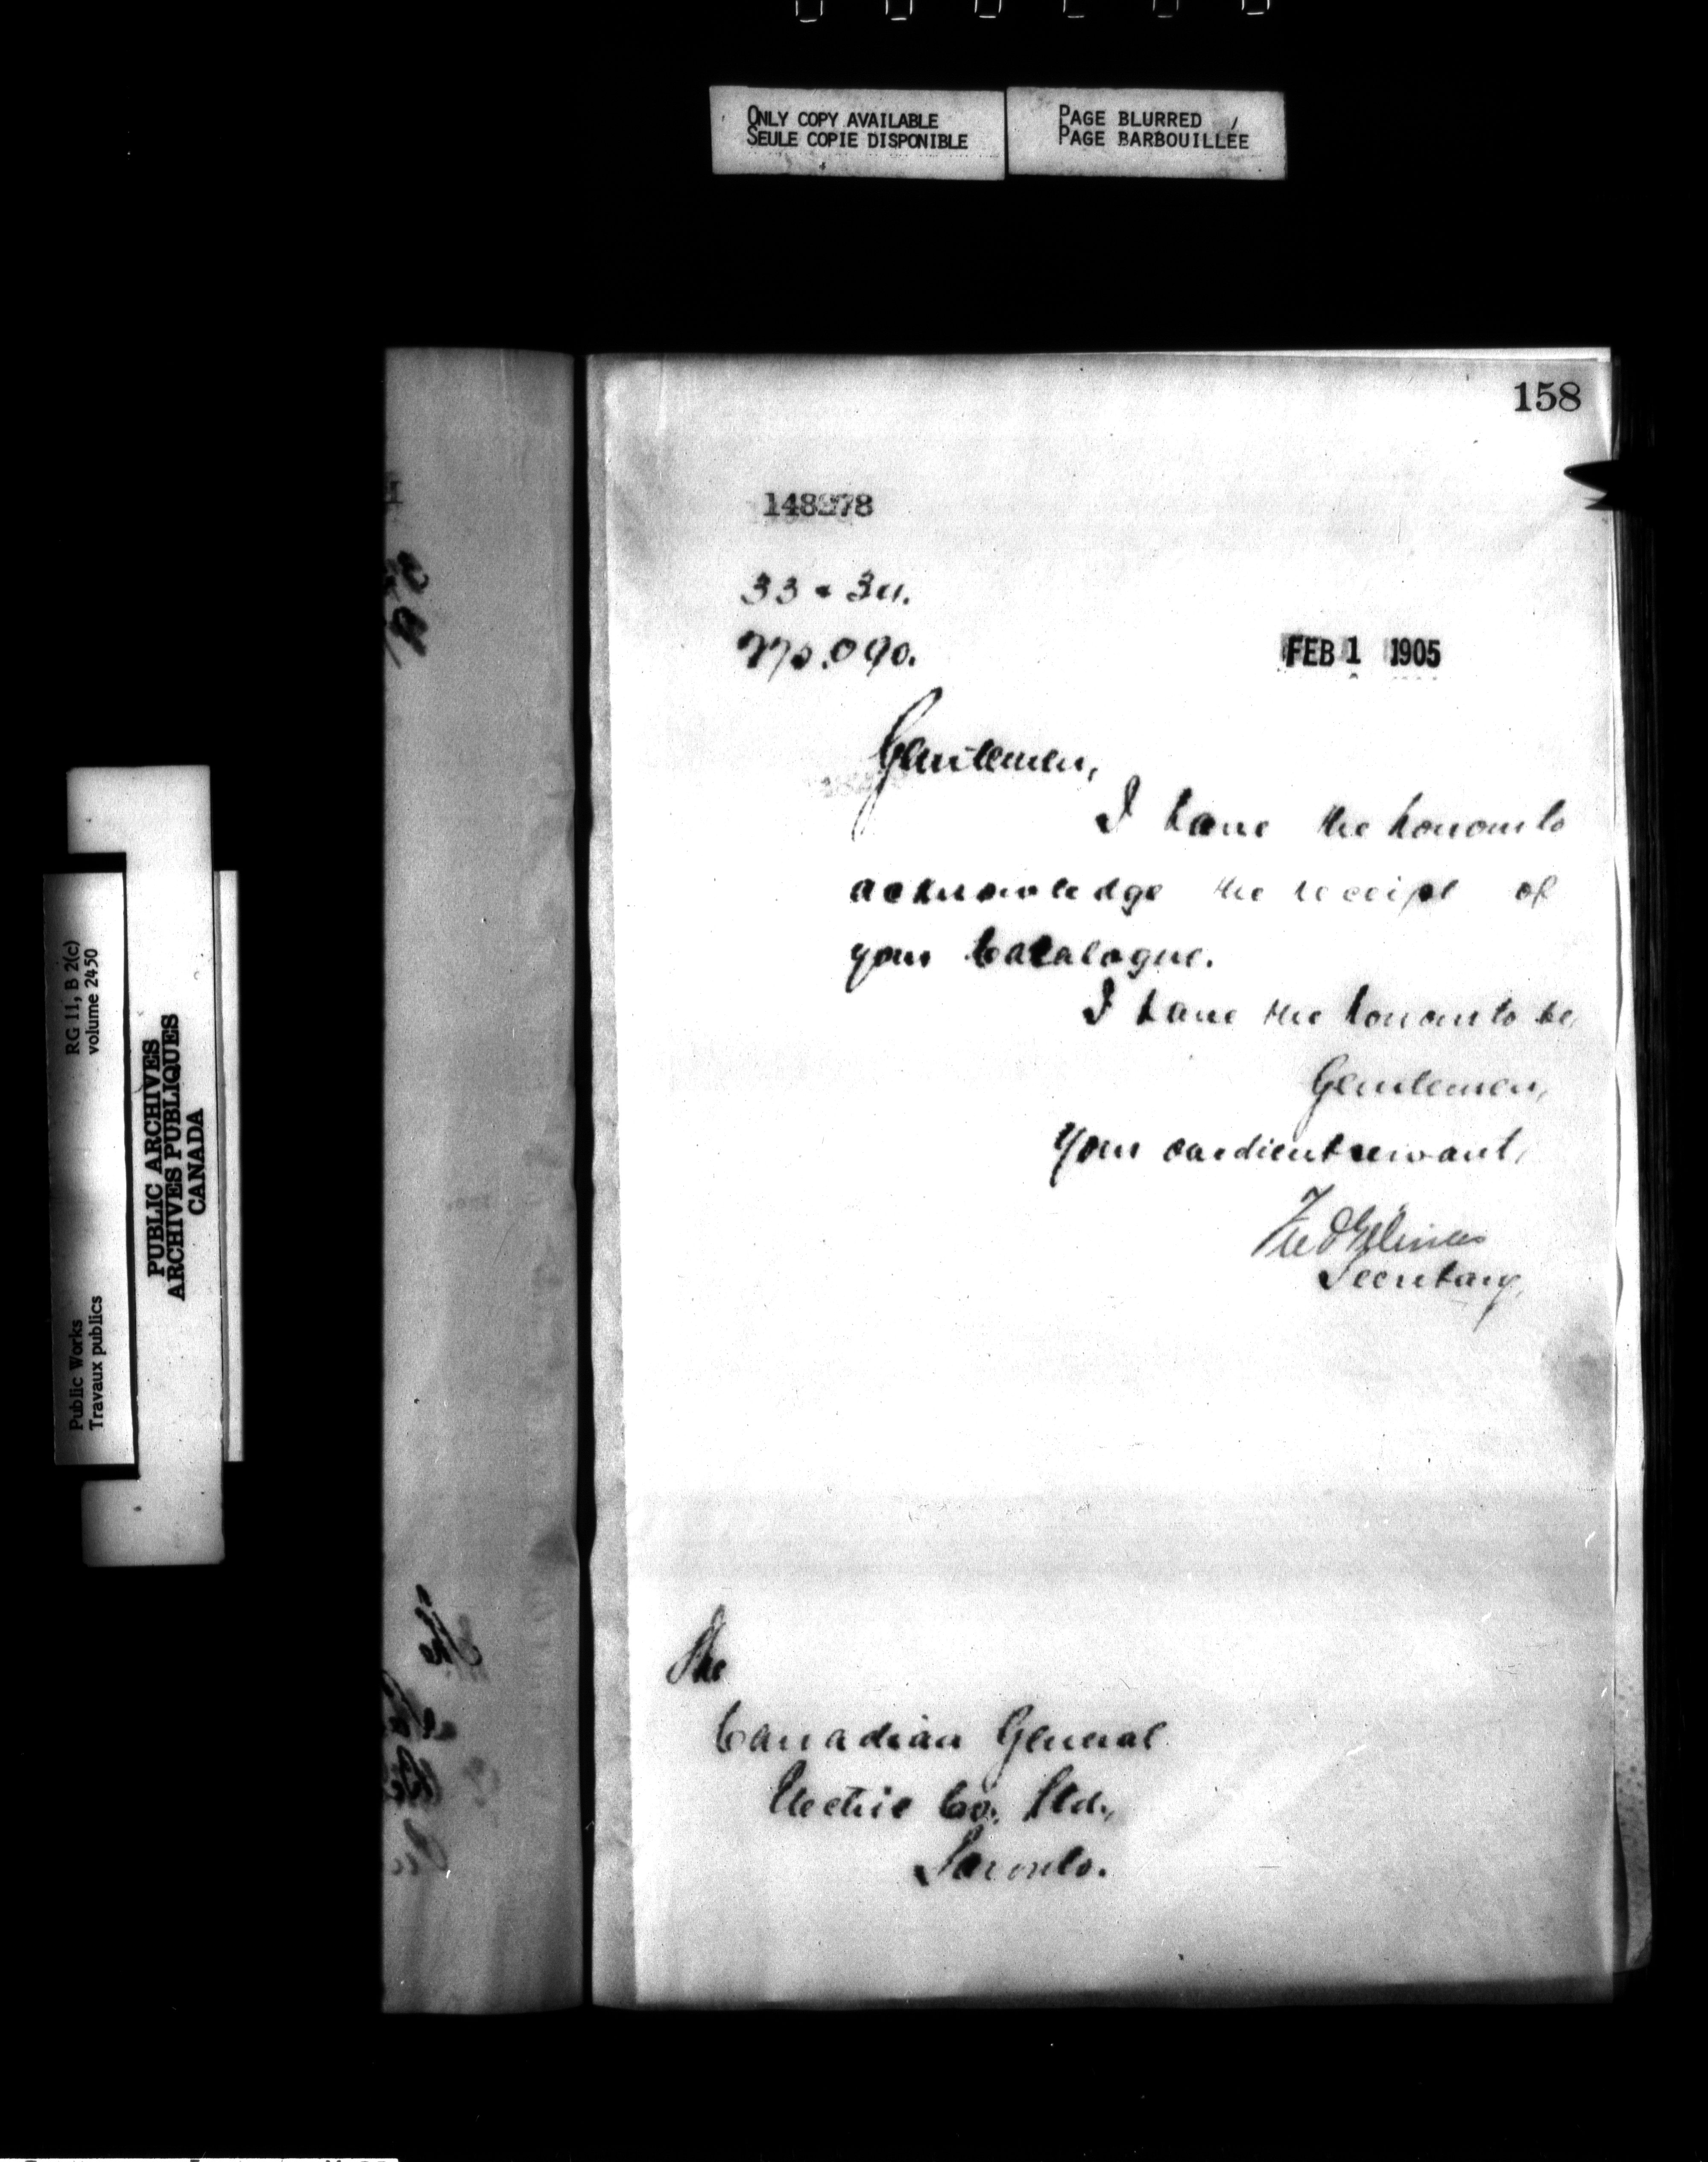 ONLY COPY AVAILABLE
SEULE COPIE DISPONIBLE
PAGE BLURRED
PAGE BARBOUILLÉE
158
148278
33 34.
270.090.
FEB 1 1905
Gentlemen,
I have the honour to
acknowledge the receipt of
your Catalogue.
I have the honour to be,
Gentlemen,
Your obedient servant,
Fred Gélinas
Secretary,
The
Canadian General
Electric Co. Ltd.,
Toronto.
RG 11, B 2(c)
volume 2450
Public Works
Travaux publics
PUBLIC ARCHIVES
ARCHIVES PUBLIQUES
CANADA
The